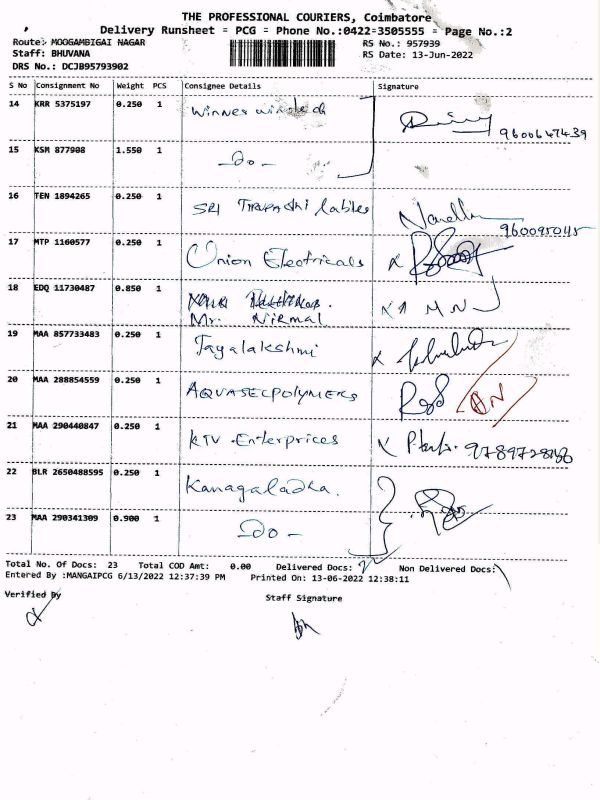 THE PROFESSIONAL COURIERS, Coimbatore
Delivery Runsheet = PCG = Phone No.:0422=3505555 = Page No.:2
Route: MOOGAMBIGAI NAGAR RS No.: 957939
Staff: BHUVANA RS Date: 13-Jun-2022
DRS No.: DCJB95793902
S No Consignment No Weight PCS Consignee Details Signature
14 KRR 5375197 0.250 1 Winner
9600647439
15 KSM 877908 1.550 1 -Do-
16 TEN 1894265 0.250 1 SRI Tirupathi
17 MTP 1160577 0.250 1 Union Electricals
18 EDQ 11730487 0.850 1
Mr. Nirmal
19 MAA 857733483 0.250 1 Jayalakshmi
20 MAA 288854559 0.250 1 AQUASECPOLYMERS
21 MAA 290440847 0.250 1 KTV .Enterprices
22 BLR 2650488595 0.250 1
23 MAA 290341309 0.900 1 -Do-
Total No. Of Docs: 23 Total COD Amt: 0.00 Delivered Docs: Non Delivered Docs:
Entered By :MANGAIPCG 6/13/2022 12:37:39 PM Printed On: 13-06-2022 12:38:11
Verified By Staff Signature